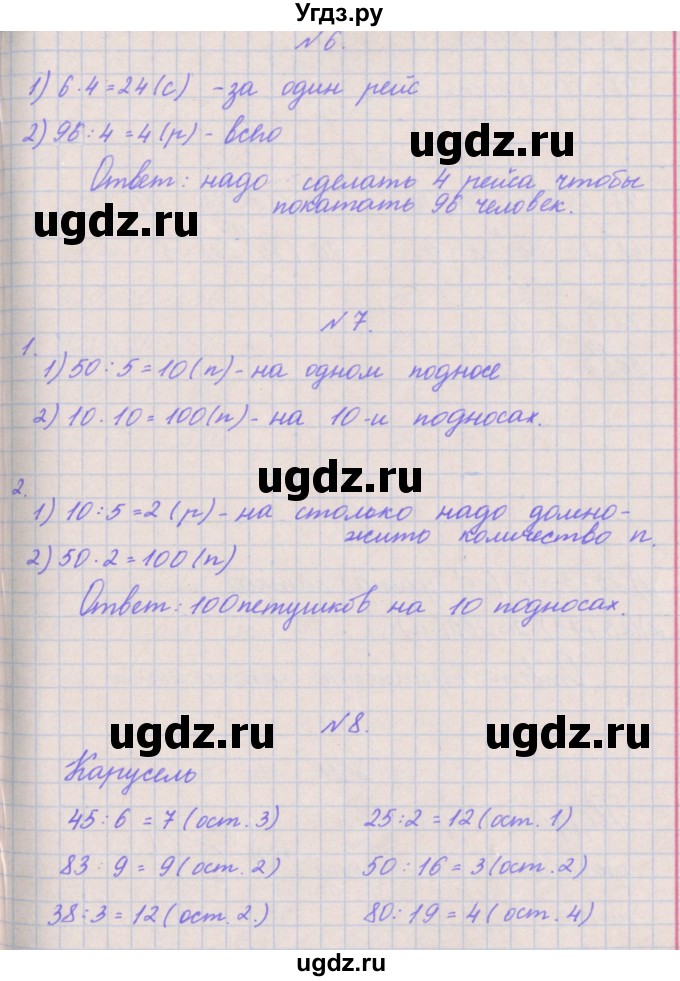 Угдз.ру
№6.
1) 6·4=24(с) -за один рейс
2) 96:4=4(р)- всего
ugdz.ru
Ответ: надо сделать 4 рейса чтобы
покатать 96 человек.
ugdz.ru
№7.
1.
1) 50:5=10(п)-на одном подносе
2) 10·10=100(п)-на 10-и подносах.
ugdz.ru
2.
1) 10:5=2(р)-на столько надо домно-
жито количество п.
2) 50·2=100(п)
ugdz.ru
Ответ: 100петушков на 10 подносах.
№8.
ugdz.ru ugdz.ru
Карусель
45:6=7(ост.3) 25:2=12(ост.1)
83:9=9(ост.2) 50:16=3(ост.2)
38:3=12(ост.2.) 80:19=4(ост.4)
ugdz.ru